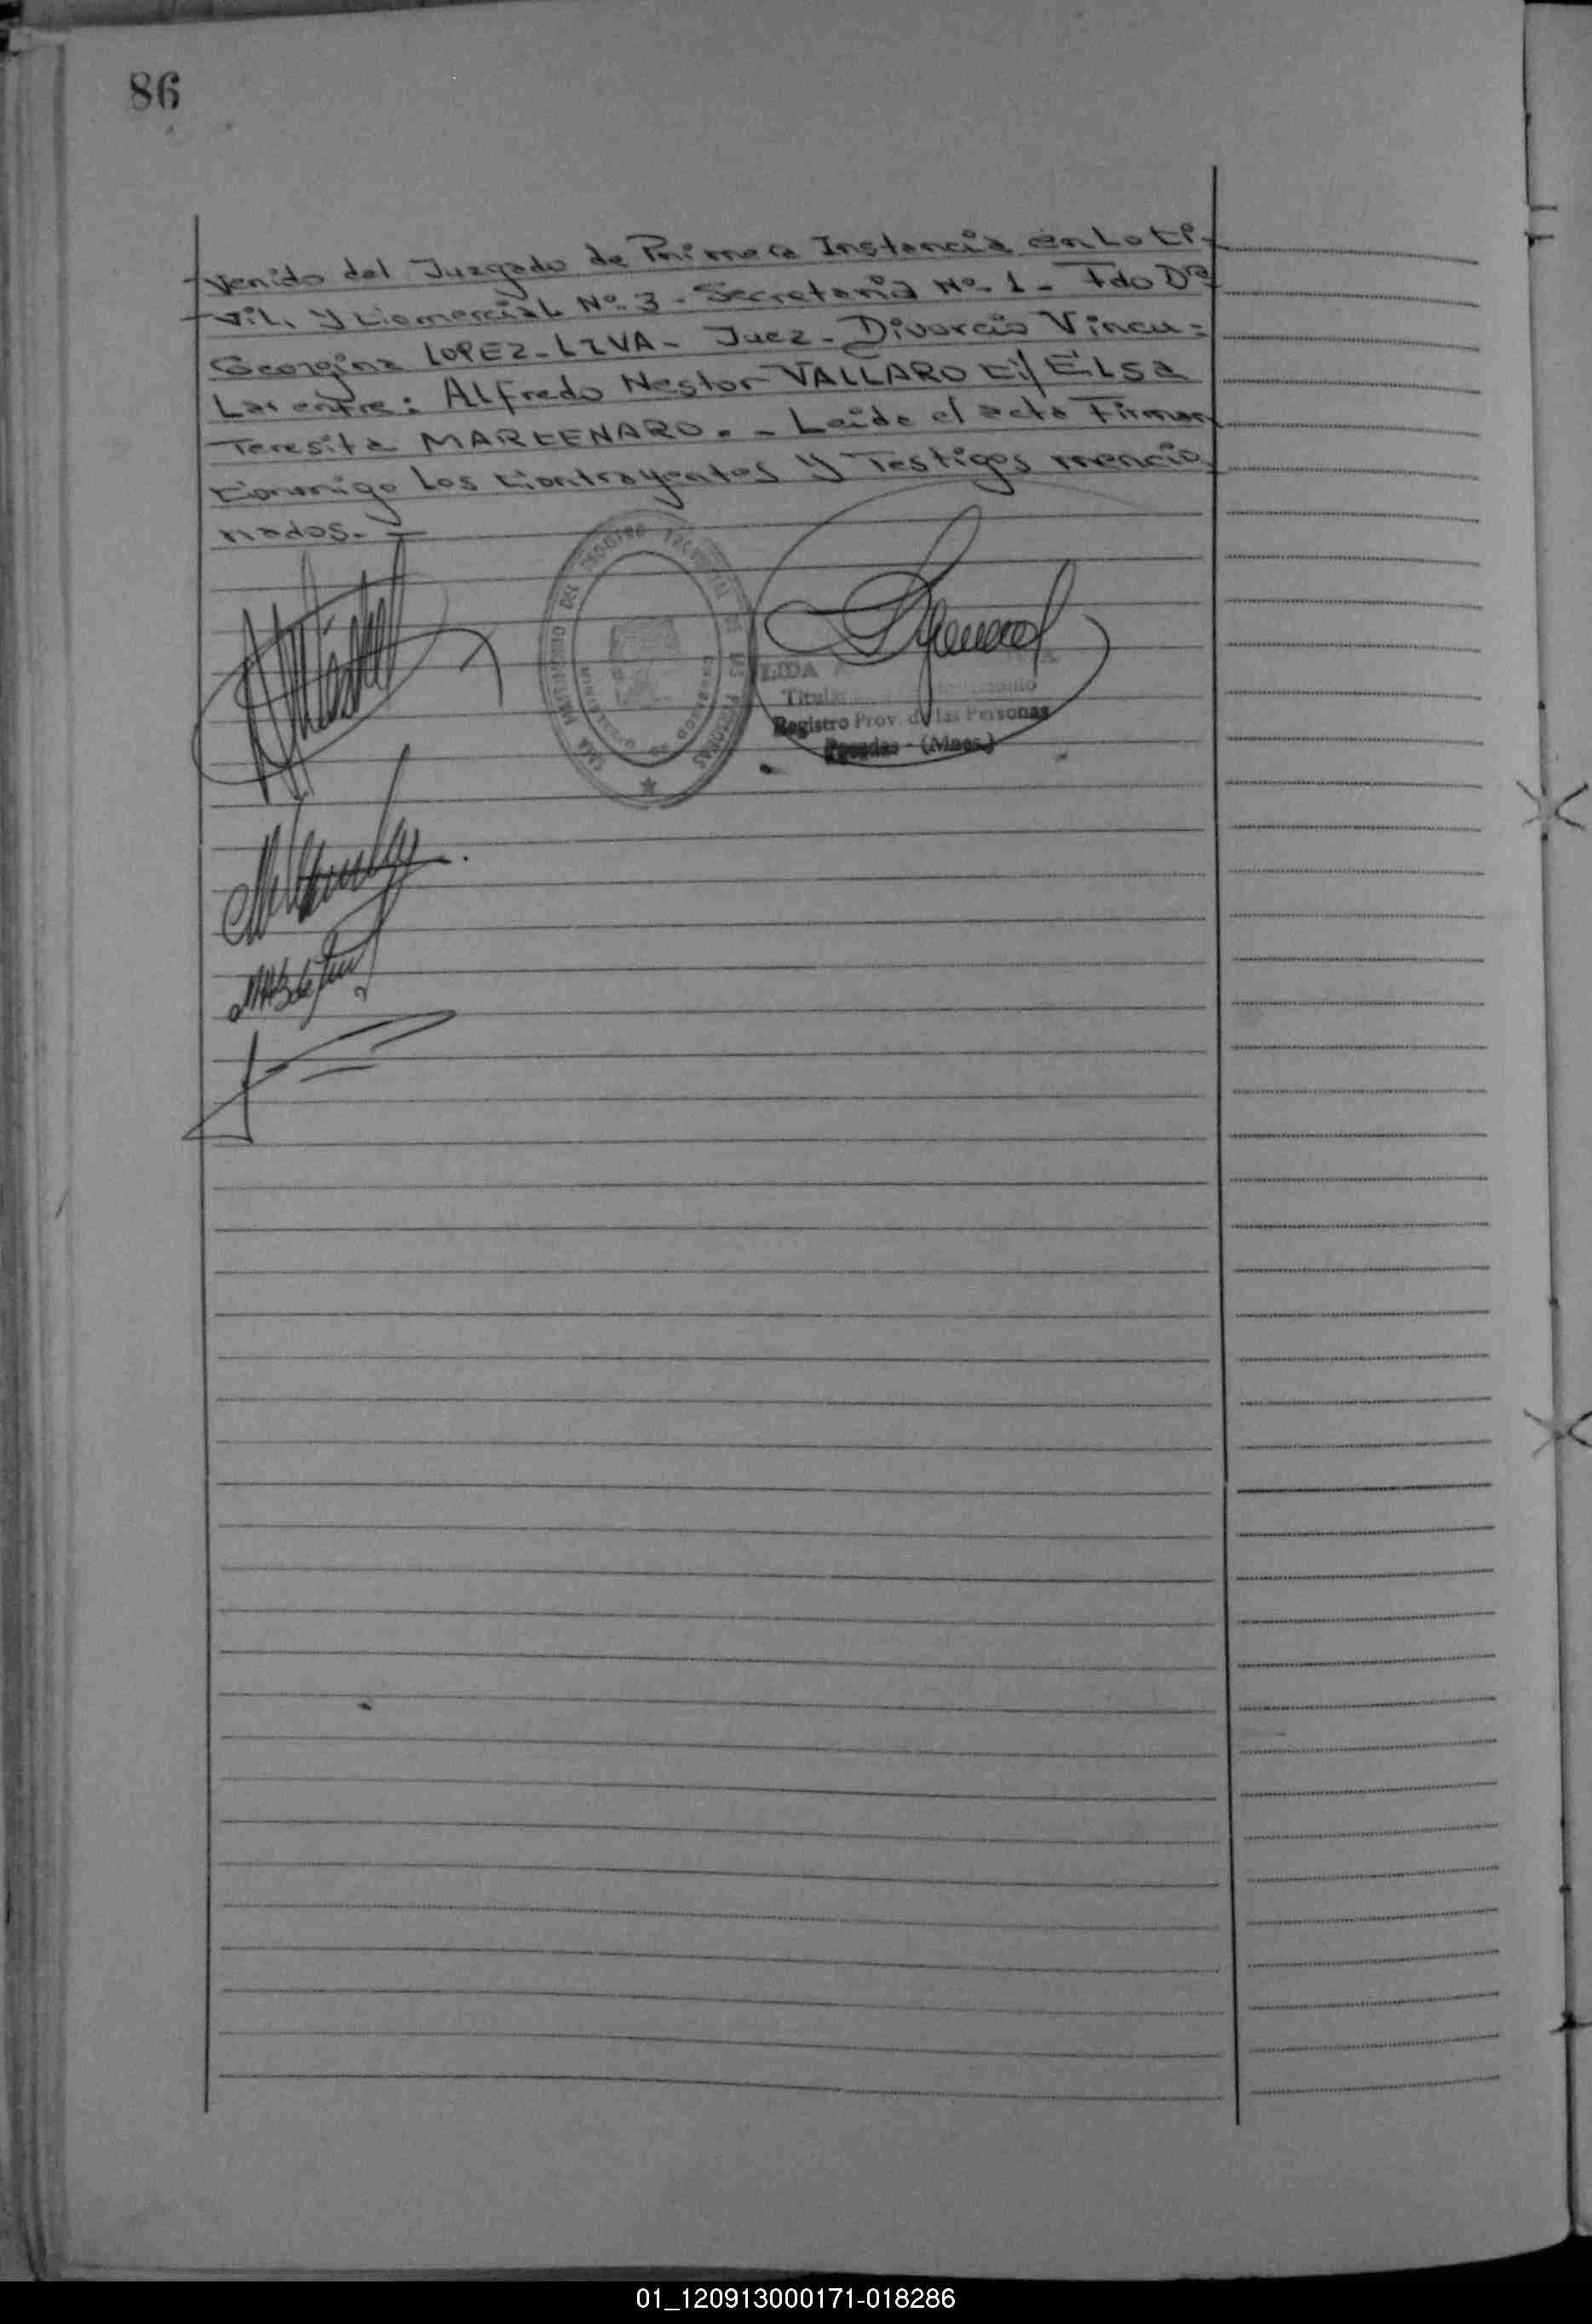 86
venido del Juzgado de Primera Instancia en Lo Ci-
vil. y Comercial Nº 3 - Secretaria Nº 1 - Fdo Dra
Georgina LOPEZ-LIVA - Juez - Divorcio Vincu=
Lar entre: Alfredo Nestor VALLARO C/ ELSA
Teresita MARCENARO. - Leida el acta Firman
Conmigo Los Contrayentes y Testigos mencio
nados. -
LIDA
Titular
Registro Prov. de las Personas
Posadas - (Mnes.)
01_120913000171-018286